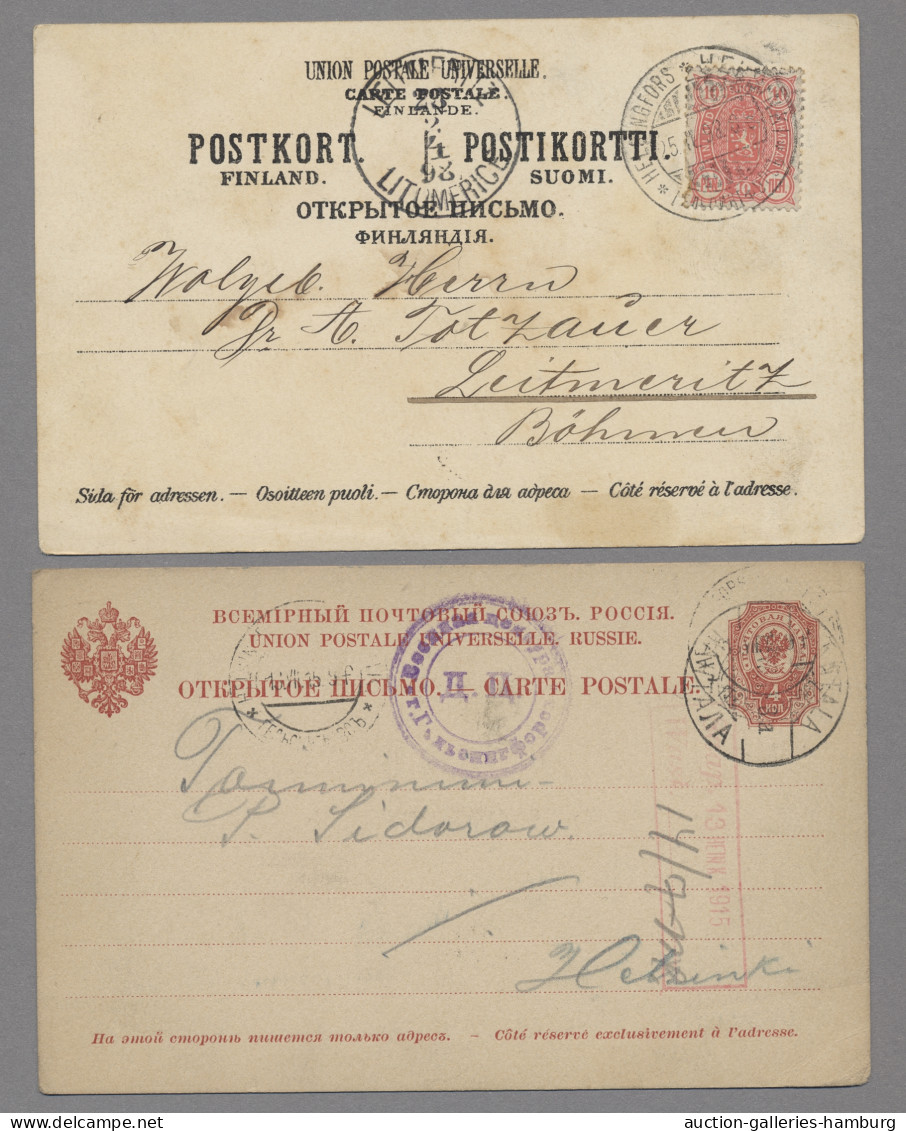 UNION POSTALE UNIVERSELLE.
CARTE POSTALE.
FINLANDE.
POSTKORT. POSTIKORTTI.
FINLAND. SUOMI.
ОТКРЫТОЕ ПИСЬМО.
ФИНЛЯНДІЯ.
LITOMĚŘICE
HELSINGFORS
10
10
Wolgeb. Herrn
Dr A. Totzauer
Leitmeritz
Böhmen
Sida för adressen. — Osoitteen puoli. — Сторона для адреса — Côté réservé à l'adresse.
ВСЕМІРНЫЙ ПОЧТОВЫЙ СОЮЗЪ. РОССІЯ.
UNION POSTALE UNIVERSELLE. RUSSIE.
ОТКРЫТОЕ ПИСЬМО. — CARTE POSTALE.
Д. Ц.
4
КОП
P. Sidorow.
Helsinki
1915
На этой сторонѣ пишется только адресъ. — Côté réservé exclusivement à l'adresse.
auction-galleries-hamburg